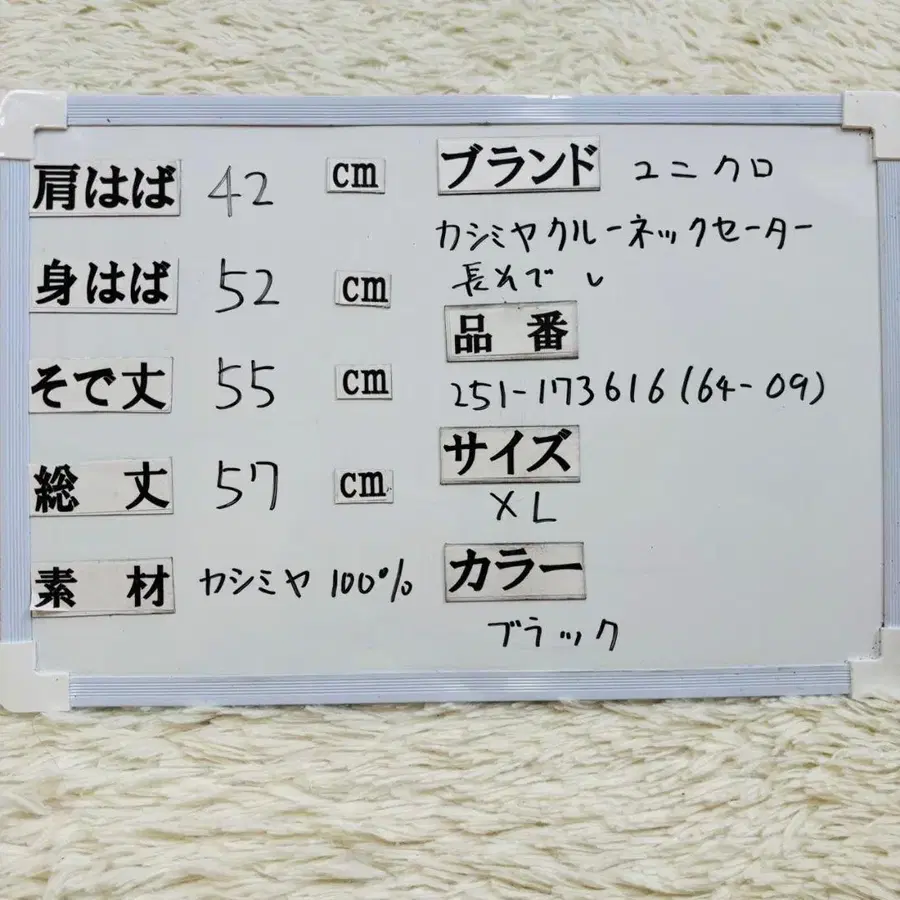 肩はば 42 cm
身はば 52 cm
そで丈 55 cm
総丈 57 cm
素材 カシミヤ 100%
ブランド ユニクロ
カシミヤクルーネックセーター
長そで
品番
251-173616(64-09)
サイズ
XL
カラー
ブラック